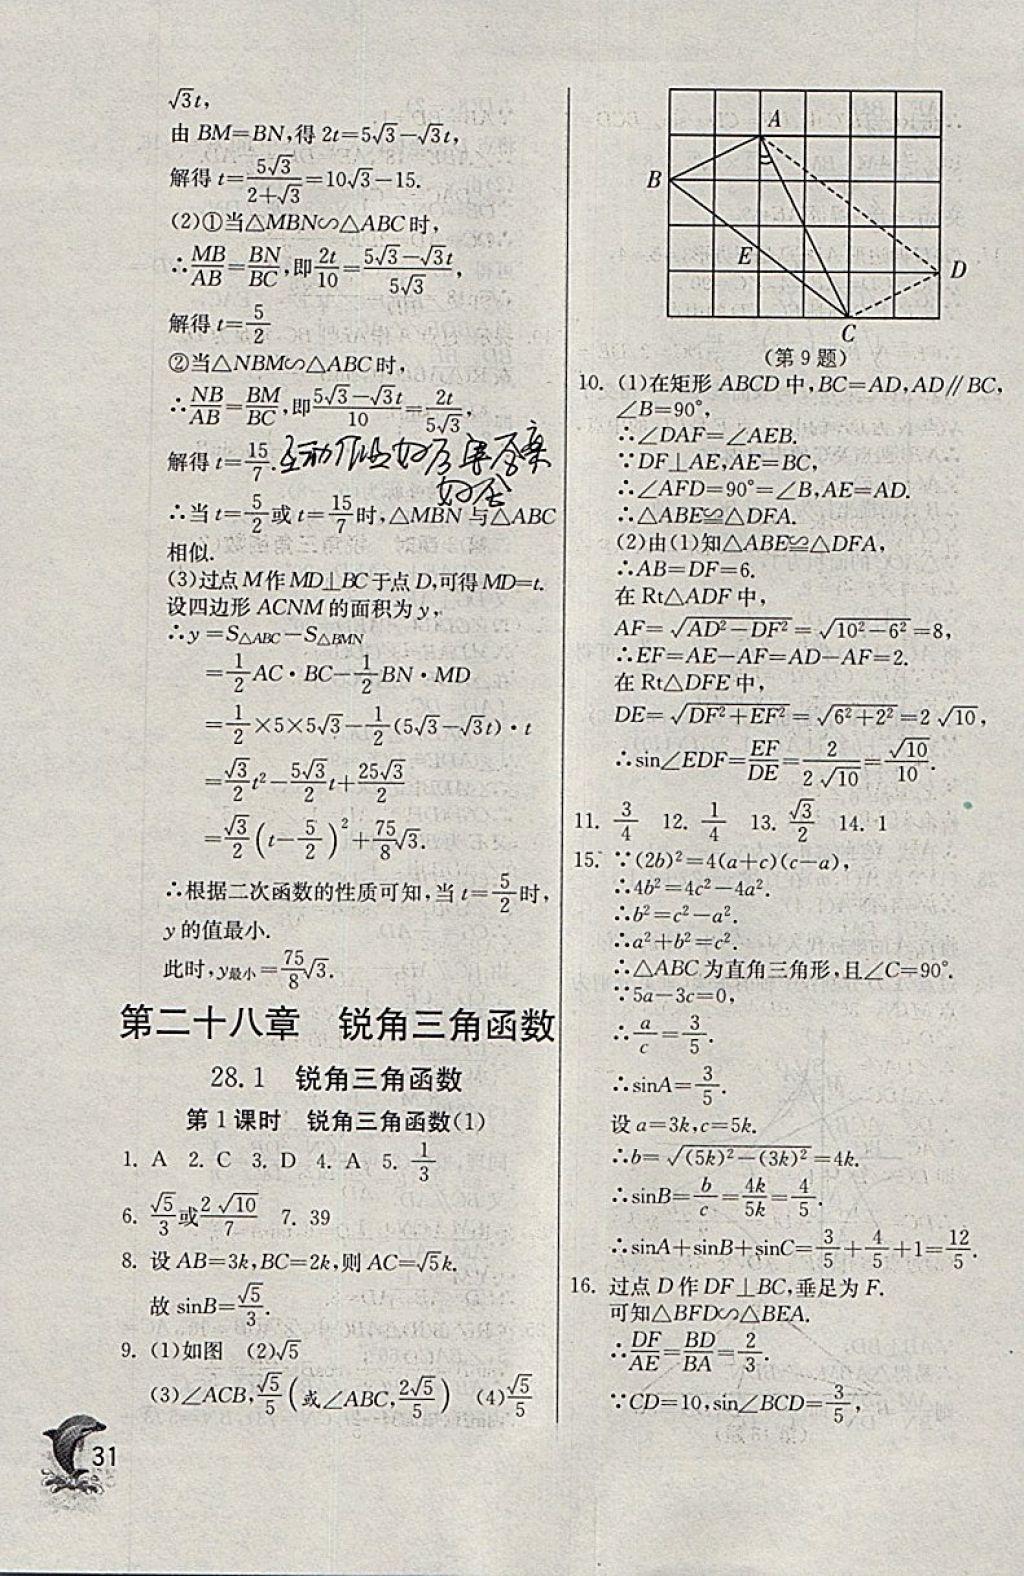 √3t,
由 BM=BN,得 2t=5√3-√3t,
解得 t=5√3/(2+√3)=10√3-15.
(2)①当△MBN∽△ABC 时,
∴MB/AB=BN/BC,即2t/10=(5√3-√3t)/5√3,
解得 t=5/2
②当△NBM∽△ABC 时,
∴NB/AB=BM/BC,即(5√3-√3t)/10=2t/5√3,
解得 t=15/7.
∴当 t=5/2或 t=15/7时,△MBN 与△ABC
相似.
(3)过点 M 作 MD⊥BC 于点 D,可得 MD=t.
设四边形 ACNM 的面积为 y,
∴y=S△ABC-S△BMN
=1/2AC·BC-1/2BN·MD
=1/2×5×5√3-1/2(5√3-√3t)·t
=√3/2t²-5√3/2t+25√3/2
=√3/2(t-5/2)²+75/8√3.
∴根据二次函数的性质可知,当 t=5/2时,
y 的值最小.
此时,y最小=75/8√3.
第二十八章 锐角三角函数
28.1 锐角三角函数
第 1 课时 锐角三角函数(1)
1. A 2. C 3. D 4. A 5. 1/3
6. √5/3或2√10/7 7. 39
8. 设 AB=3k,BC=2k,则 AC=√5k.
故 sinB=√5/3.
9. (1)如图 (2)√5
(3)∠ACB,√5/5(或∠ABC,2√5/5) (4)√5/5
31
A
B
E
D
C
(第 9 题)
10. (1)在矩形 ABCD 中,BC=AD,AD∥BC,
∠B=90°,
∴∠DAF=∠AEB.
∵DF⊥AE,AE=BC,
∴∠AFD=90°=∠B,AE=AD.
∴△ABE≌△DFA.
(2)由(1)知△ABE≌△DFA,
∴AB=DF=6.
在 Rt△ADF 中,
AF=√(AD²-DF²)=√(10²-6²)=8,
∴EF=AE-AF=AD-AF=2.
在 Rt△DFE 中,
DE=√(DF²+EF²)=√(6²+2²)=2√10,
∴sin∠EDF=EF/DE=2/2√10=√10/10.
11. 3/4 12. 1/4 13. √3/2 14. 1
15. ∵(2b)²=4(a+c)(c-a),
∴4b²=4c²-4a².
∴b²=c²-a².
∴a²+b²=c².
∴△ABC 为直角三角形,且∠C=90°.
∵5a-3c=0,
∴a/c=3/5.
∴sinA=3/5.
设 a=3k,c=5k.
∴b=√((5k)²-(3k)²)=4k.
∴sinB=b/c=4k/5k=4/5.
∴sinA+sinB+sinC=3/5+4/5+1=12/5.
16. 过点 D 作 DF⊥BC,垂足为 F.
可知△BFD∽△BEA.
∴DF/AE=BD/BA=2/3.
∵CD=10,sin∠BCD=3/5,